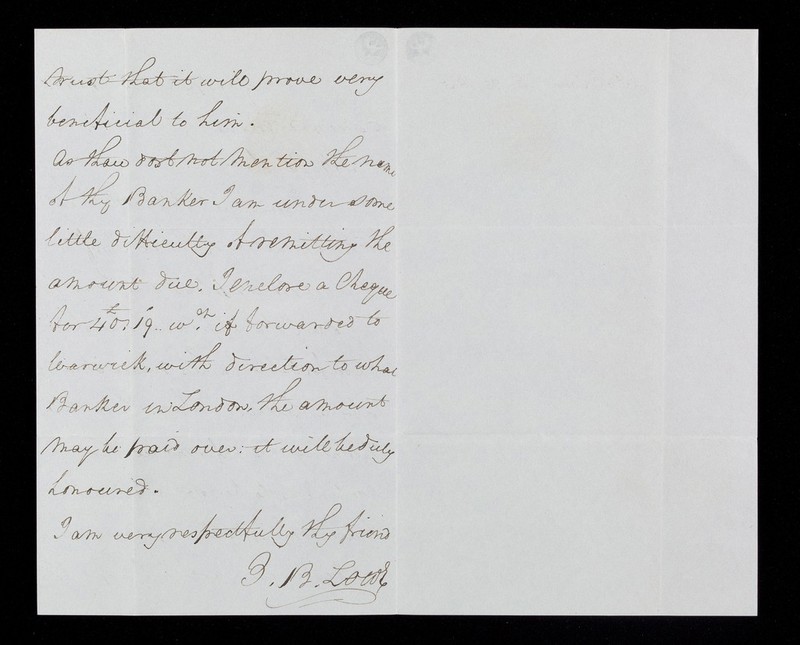 trust that it will prove very
beneficial to him.
As thou dost not mention the name
of thy Banker I am under some
little difficulty of remitting the
amount due. I enclose a Cheque
for 40£. 19.. wch. if forwarded to
Warwick, with direction to what
Banker in London, the amount
may be paid over: it will be duly
honoured.
I am very respectfully thy friend
B. Lowe